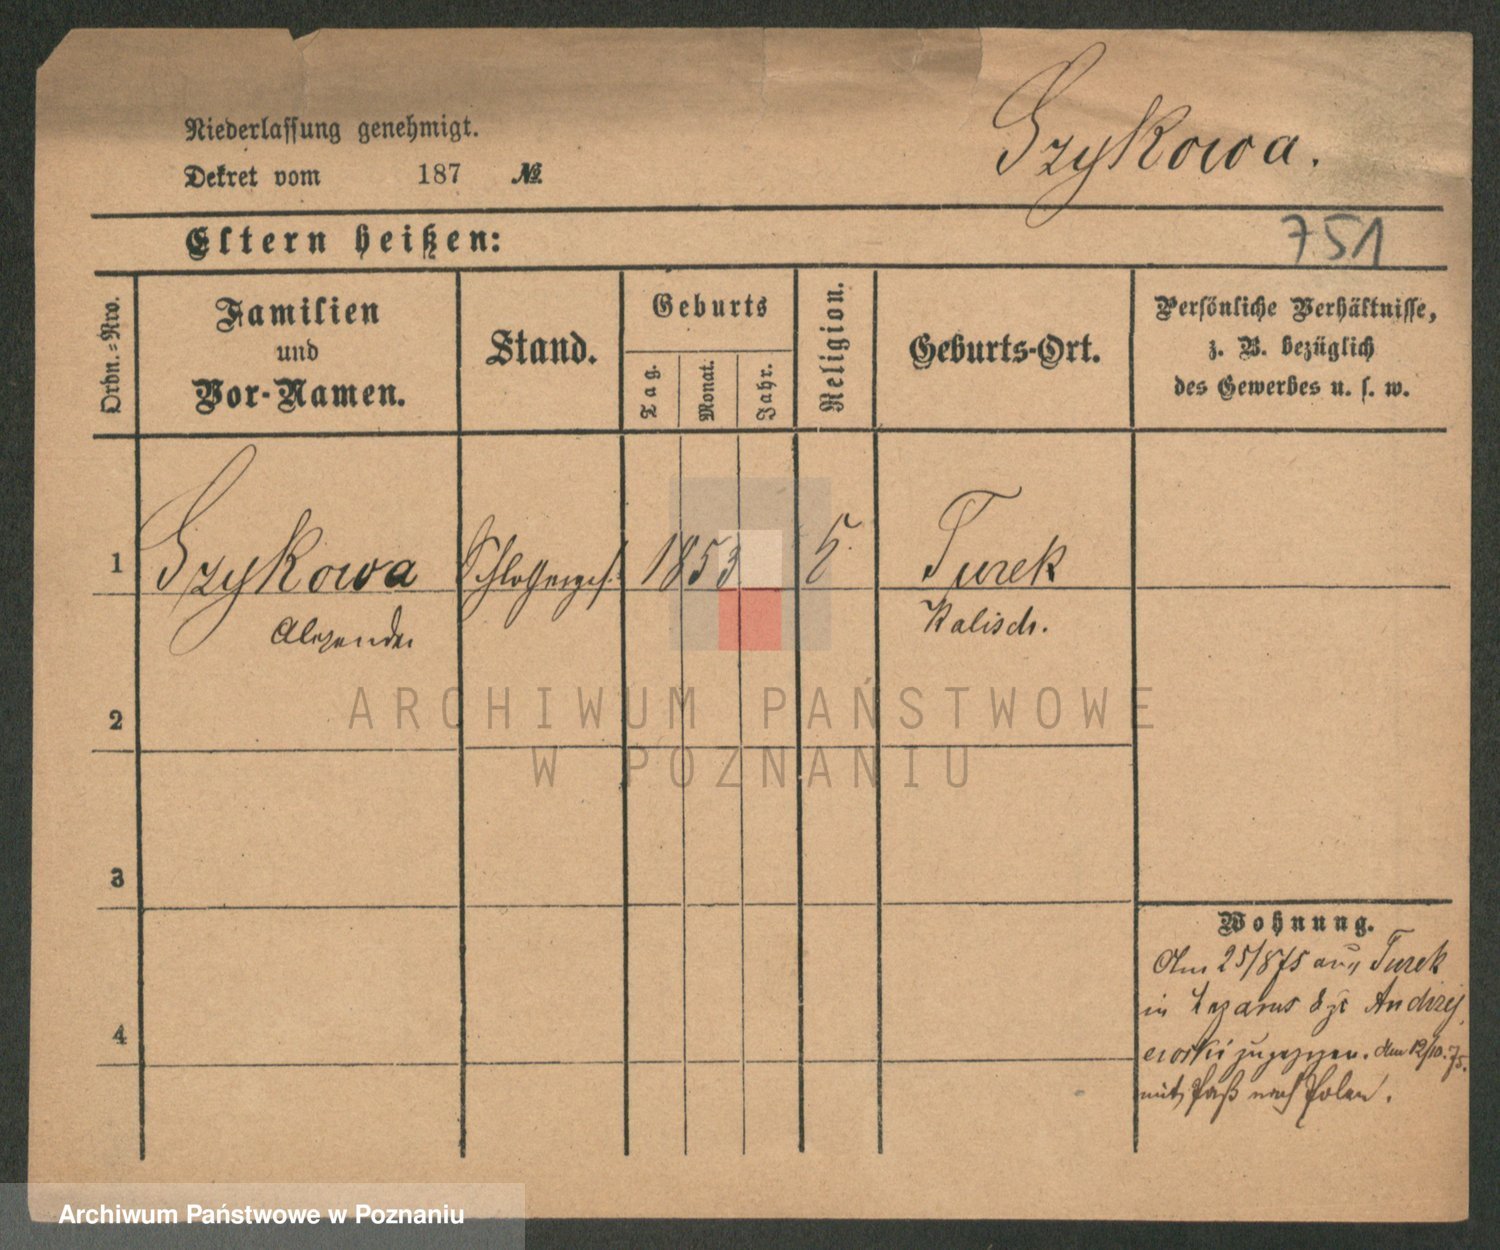 Niederlassung genehmigt.
Szykowa.
Dekret vom 187 №
Eltern heißen:
751
Ordn.=Nro.
Familien
und
Vor-Namen.
Stand.
Geburts
Tag.
Monat.
Jahr.
Religion.
Geburts-Ort.
Persönliche Verhältnisse,
z. B. bezüglich
des Gewerbes u. s. w.
1 Szykowa Schlosserges. 1853 Turek
Alexander Kalisch.
2
3
4
Wohnung.
Am 25/8 75 aus Turek
in Lazarus bei Andrzej
ewski zugezogen. Am 12/10. 75.
mit Paß nach Polen.
ARCHIWUM PAŃSTWOWE
W POZNANIU
Archiwum Państwowe w Poznaniu